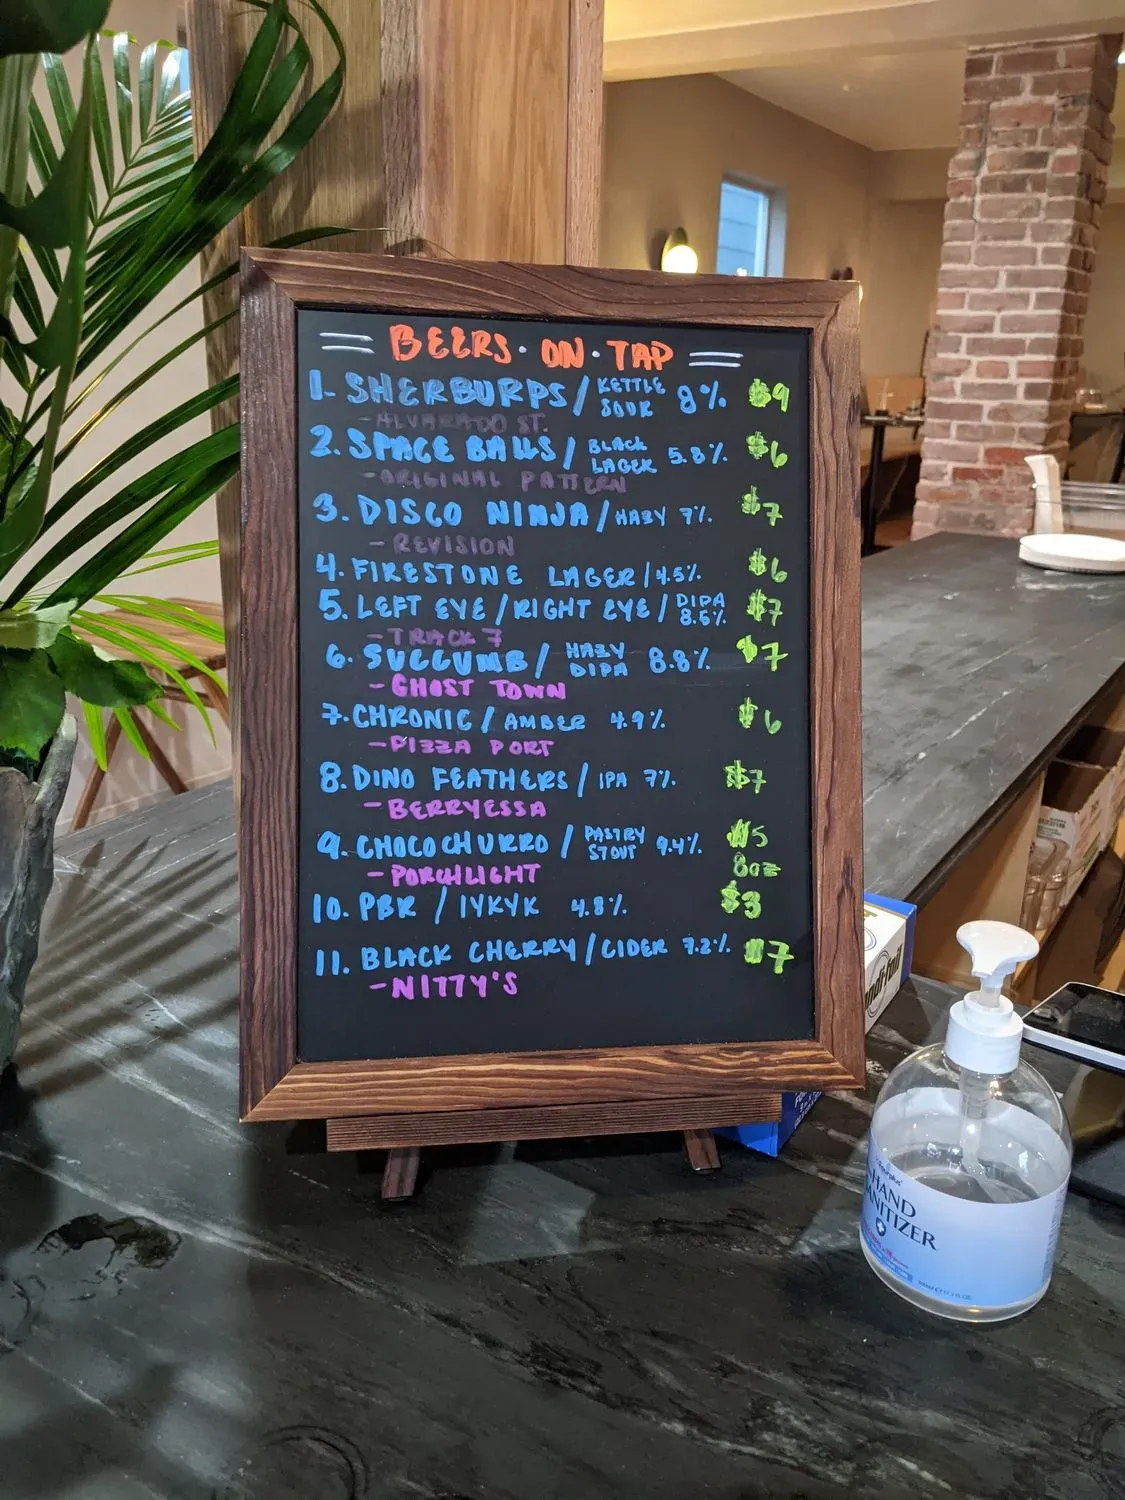 BEERS · ON · TAP
1. SHERBURPS / KETTLE SOUR 8% $9
- ALVARADO ST.
2. SPACE BALLS / BLACK LAGER 5.8% $6
- ORIGINAL PATTERN
3. DISCO NINJA / HAZY 7% $7
- REVISION
4. FIRESTONE LAGER / 4.5% $6
5. LEFT EYE / RIGHT EYE / DIPA 8.5% $7
- TRACK 7
6. SUCCUMB / HAZY DIPA 8.8% $7
- GHOST TOWN
7. CHRONIC / AMBER 4.9% $6
- PIZZA PORT
8. DINO FEATHERS / IPA 7% $7
- BERRYESSA
9. CHOCOCHURRO / PASTRY STOUT 9.4% $5 8oz
- PORCHLIGHT
10. PBR / IYKYK 4.8% $3
11. BLACK CHERRY / CIDER 7.2% $7
- NITTY'S
HAND
SANITIZER